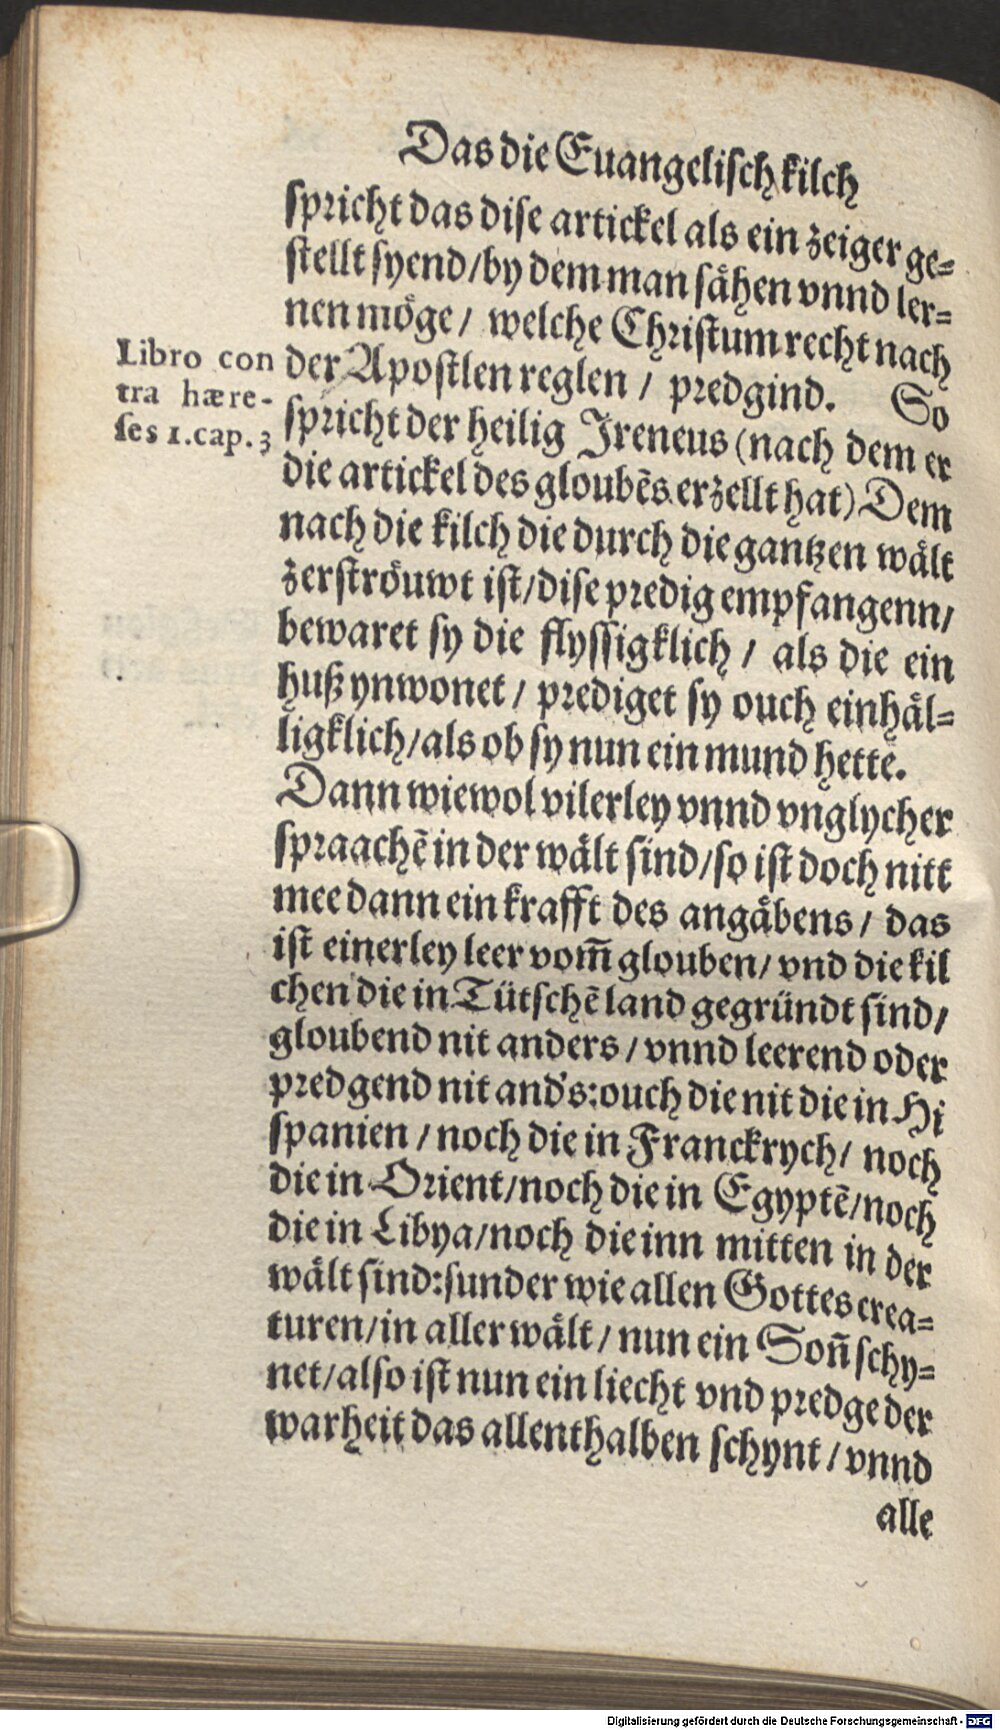 Das die Euangelisch kilch
spricht das dise artickel als ein zeiger ge=
stellt syend/by dem man såhen vnnd ler=
nen möge/ welche Christum recht nach
der Apostlen reglen / predgind. So
spricht der heilig Ireneus (nach dem er
die artickel des gloubēs erzellt hat) Dem
nach die kilch die durch die gantzen wålt
zerströuwt ist/dise predig empfangenn/
bewaret sy die flyssigklich / als die ein
huß ynwonet / prediget sy ouch einhål=
ligklich/als ob sy nun ein mund hette.
Dann wiewol vilerley vnnd vnglycher
spraachē in der wålt sind/so ist doch nitt
mee dann ein krafft des angåbens / das
ist einerley leer vom̄ glouben/ vnd die kil
chen die in Tütschē land gegründt sind/
gloubend nit anders / vnnd leerend oder
predgend nit and's: ouch die nit die in Hi
spanien / noch die in Franckrych/ noch
die in Orient/noch die in Egyptē/noch
die in Libya/noch die inn mitten in der
wålt sind: sunder wie allen Gottes crea=
turen/in aller wålt / nun ein Son̄ schy=
net/also ist nun ein liecht vnd predge der
warheit das allenthalben schynt / vnnd
alle
Libro con
tra hære-
ses 1.cap.3
Digitalisierung gefördert durch die Deutsche Forschungsgemeinschaft - DFG